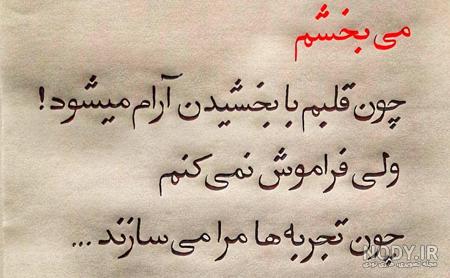 می‌بخشم
چون قلبم با بخشیدن آرام میشود!
ولی فراموش نمی‌کنم
چون تجربه‌ها مرا می‌سازند ...
NODY.IR